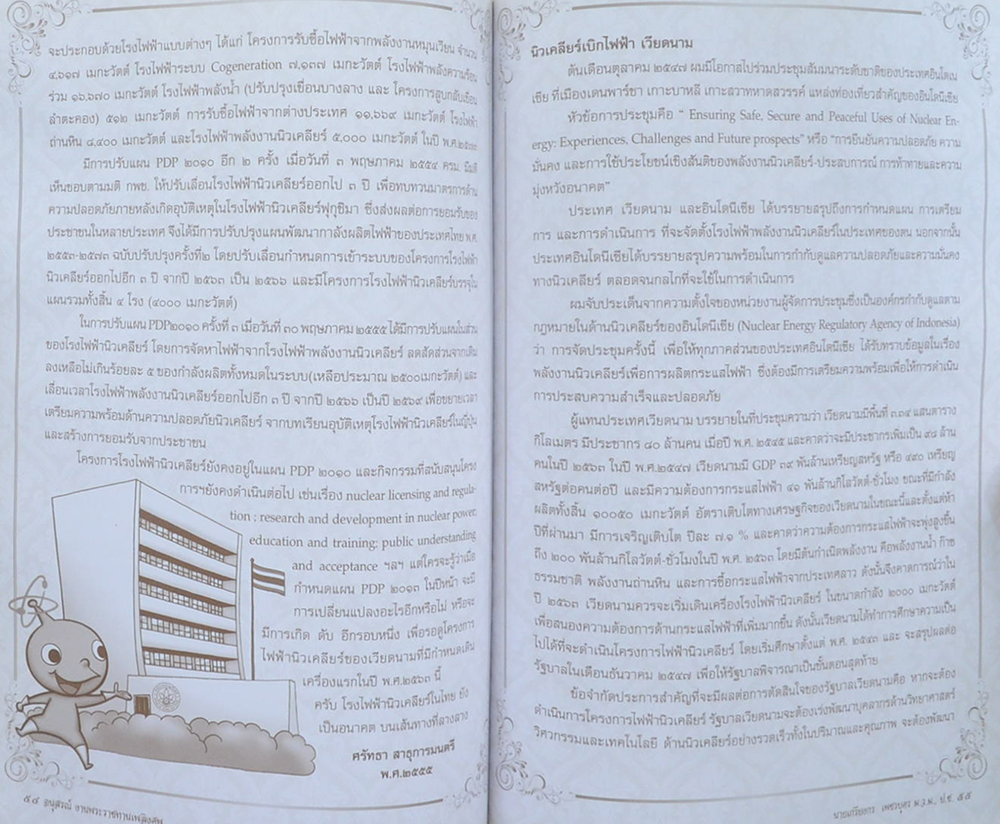 จะประกอบด้วยโรงไฟฟ้าแบบต่างๆ ได้แก่ โครงการรับซื้อไฟฟ้าจากพลังงานหมุนเวียน จำนวน
๔,๖๑๗ เมกะวัตต์ โรงไฟฟ้าระบบ Cogeneration ๗,๑๓๗ เมกะวัตต์ โรงไฟฟ้าพลังความร้อน
ร่วม ๑๖,๖๗๐ เมกะวัตต์ โรงไฟฟ้าพลังน้ำ (ปรับปรุงเขื่อนบางลาง และ โครงการสูบกลับเขื่อน
ลำตะคอง) ๕๑๒ เมกะวัตต์ การรับซื้อไฟฟ้าจากต่างประเทศ ๑๑,๖๖๙ เมกะวัตต์ โรงไฟฟ้า
ถ่านหิน ๘,๔๐๐ เมกะวัตต์ และโรงไฟฟ้าพลังงานนิวเคลียร์ ๕,๐๐๐ เมกะวัตต์ ในปี
มีการปรับแผน PDP ๒๐๑๐ อีก ๒ ครั้ง เมื่อวันที่ ๓ พฤษภาคม ๒๕๕๔ ครม. มีมติ
เห็นชอบตามมติ กพช. ให้ปรับเลื่อนโรงไฟฟ้านิวเคลียร์ออกไป ๓ ปี เพื่อทบทวนมาตรการด้าน
ความปลอดภัยภายหลังเกิดอุบัติเหตุในโรงไฟฟ้านิวเคลียร์ฟุกุชิมา ซึ่งส่งผลต่อการยอมรับของ
ประชาชนในหลายประเทศ จึงได้มีการปรับปรุงแผนพัฒนากาลังผลิตไฟฟ้าของประเทศไทย พ.ศ.
๒๕๕๓-๒๕๗๓ ฉบับปรับปรุงครั้งที่๒ โดยปรับเลื่อนกำหนดการเข้าระบบของโครงการโรงไฟฟ้า
นิวเคลียร์ออกไปอีก ๓ ปี จากปี ๒๕๖๓ เป็น ๒๕๖๖ และมีโครงการโรงไฟฟ้านิวเคลียร์บรรจุใน
แผนรวมทั้งสิ้น ๔ โรง (๔๐๐๐ เมกะวัตต์)
ในการปรับแผน PDP๒๐๑๐ ครั้งที่ ๓ เมื่อวันที่ ๓๐ พฤษภาคม ๒๕๕๕ ได้มีการปรับแผนในส่วน
ของโรงไฟฟ้านิวเคลียร์ โดยการจัดหาไฟฟ้าจากโรงไฟฟ้าพลังงานนิวเคลียร์ ลดสัดส่วนจากเดิม
ลงเหลือไม่เกินร้อยละ ๕ ของกำลังผลิตทั้งหมดในระบบ(เหลือประมาณ ๒๕๐๐เมกะวัตต์) และ
เลื่อนเวลาโรงไฟฟ้าพลังงานนิวเคลียร์ออกไปอีก ๓ ปี จากปี ๒๕๖๖ เป็นปี ๒๕๖๙ เพื่อขยายเวลา
เตรียมความพร้อมด้านความปลอดภัยนิวเคลียร์ จากบทเรียนอุบัติเหตุโรงไฟฟ้านิวเคลียร์ในญี่ปุ่น
และสร้างการยอมรับจากประชาชน
โครงการโรงไฟฟ้านิวเคลียร์ยังคงอยู่ในแผน PDP ๒๐๑๐ และกิจกรรมที่สนับสนุนโครง
การฯยังคงดำเนินต่อไป เช่นเรื่อง nuclear licensing and regula-
tion : research and development in nuclear power;
education and training; public understanding
and acceptance ฯลฯ แต่ใครจะรู้ว่าเมื่อ
กำหนดแผน PDP ๒๐๑๓ ในปีหน้า จะมี
การเปลี่ยนแปลงอะไรอีกหรือไม่ หรือจะ
มีการเกิด ดับ อีกรอบหนึ่ง เพื่อรอดูโครงการ
ไฟฟ้านิวเคลียร์ของเวียดนามที่มีกำหนดเดิน
เครื่องแรกในปี พ.ศ.๒๕๖๓ นี้
ครับ โรงไฟฟ้านิวเคลียร์ในไทย ยัง
เป็นอนาคต บนเส้นทางที่ลางลาง
ศรัทธา สาธุการมนตรี
พ.ศ.๒๕๕๕
๕๔ อนุสรณ์ งานพระราชทานเพลิงศพ
นิวเคลียร์เบิกไฟฟ้า เวียดนาม
ต้นเดือนตุลาคม ๒๕๔๗ ผมมีโอกาสไปร่วมประชุมสัมมนาระดับชาติของประเทศอินโดเน
เซีย ที่เมืองเดนพาร์ซา เกาะบาหลี เกาะสวาทหาดสวรรค์ แหล่งท่องเที่ยวสำคัญของอินโดนีเซีย
หัวข้อการประชุมคือ “ Ensuring Safe, Secure and Peaceful Uses of Nuclear En-
ergy: Experiences, Challenges and Future prospects” หรือ “การยืนยันความปลอดภัย ความ
มั่นคง และการใช้ประโยชน์เชิงสันติของพลังงานนิวเคลียร์-ประสบการณ์ การท้าทายและความ
มุ่งหวังอนาคต”
ประเทศ เวียดนาม และอินโดนีเซีย ได้บรรยายสรุปถึงการกำหนดแผน การเตรียม
การ และการดำเนินการ ที่จะจัดตั้งโรงไฟฟ้าพลังงานนิวเคลียร์ในประเทศของตน นอกจากนั้น
ประเทศอินโดนีเซียได้บรรยายสรุปความพร้อมในการกำกับดูแลความปลอดภัยและความมั่นคง
ทางนิวเคลียร์ ตลอดจนกลไกที่จะใช้ในการดำเนินการ
ผมจับประเด็นจากความตั้งใจของหน่วยงานผู้จัดการประชุมซึ่งเป็นองค์กรกำกับดูแลตาม
กฎหมายในด้านนิวเคลียร์ของอินโดนีเซีย (Nuclear Energy Regulatory Agency of Indonesia)
ว่า การจัดประชุมครั้งนี้ เพื่อให้ทุกภาคส่วนของประเทศอินโดนีเซีย ได้รับทราบข้อมูลในเรื่อง
พลังงานนิวเคลียร์เพื่อการผลิตกระแสไฟฟ้า ซึ่งต้องมีการเตรียมความพร้อมเพื่อให้การดำเนิน
การประสบความสำเร็จและปลอดภัย
ผู้แทนประเทศเวียดนาม บรรยายในที่ประชุมความว่า เวียดนามมีพื้นที่ ๓.๓๔ แสนตาราง
กิโลเมตร มีประชากร ๘๐ ล้านคน เมื่อปี พ.ศ. ๒๕๔๕ และคาดว่าจะมีประชากรเพิ่มเป็น ๙๘ ล้าน
คนในปี ๒๕๖๓ ในปี พ.ศ.๒๕๔๗ เวียดนามมี GDP ๓๙ พันล้านเหรียญสหรัฐ หรือ ๔๙๐ เหรียญ
สหรัฐต่อคนต่อปี และมีความต้องการกระแสไฟฟ้า ๔๑ พันล้านกิโลวัตต์-ชั่วโมง ขณะที่มีกำลัง
ผลิตทั้งสิ้น ๑๐๐๕๐ เมกะวัตต์ อัตราเติบโตทางเศรษฐกิจของเวียดนามในขณะนี้และตั้งแต่ห้า
ปีที่ผ่านมา มีการเจริญเติบโต ปีละ ๗.๑ % และคาดว่าความต้องการกระแสไฟฟ้าจะพุ่งสูงขึ้น
ถึง ๒๐๐ พันล้านกิโลวัตต์-ชั่วโมงในปี พ.ศ. ๒๕๖๓ โดยมีต้นกำเนิดพลังงาน คือพลังงานน้ำ ก๊าซ
ธรรมชาติ พลังงานถ่านหิน และการซื้อกระแสไฟฟ้าจากประเทศลาว ดังนั้นจึงคาดการณ์ว่าใน
ปี ๒๕๖๓ เวียดนามควรจะเริ่มเดินเครื่องโรงไฟฟ้านิวเคลียร์ ในขนาดกำลัง ๒๐๐๐ เมกะวัตต์
เพื่อสนองความต้องการด้านกระแสไฟฟ้าที่เพิ่มมากขึ้น ดังนั้นเวียดนามได้ทำการศึกษาความเป็น
ไปได้ที่จะดำเนินโครงการไฟฟ้านิวเคลียร์ โดยเริ่มศึกษาตั้งแต่ พ.ศ. ๒๕๓๓ และ จะสรุปผลต่อ
รัฐบาลในเดือนธันวาคม ๒๕๔๗ เพื่อให้รัฐบาลพิจารณาเป็นขั้นตอนสุดท้าย
ข้อจำกัดประการสำคัญที่จะมีผลต่อการตัดสินใจของรัฐบาลเวียดนามคือ หากจะต้อง
ดำเนินการโครงการไฟฟ้านิวเคลียร์ รัฐบาลเวียดนามจะต้องเร่งพัฒนาบุคลากรด้านวิทยาศาสตร์
วิศวกรรมและเทคโนโลยี ด้านนิวเคลียร์อย่างรวดเร็วทั้งในปริมาณและคุณภาพ จะต้องพัฒนา
นายเกรียงกร เพชรบุตร ม.ว.ม., ป.ช. ๕๕